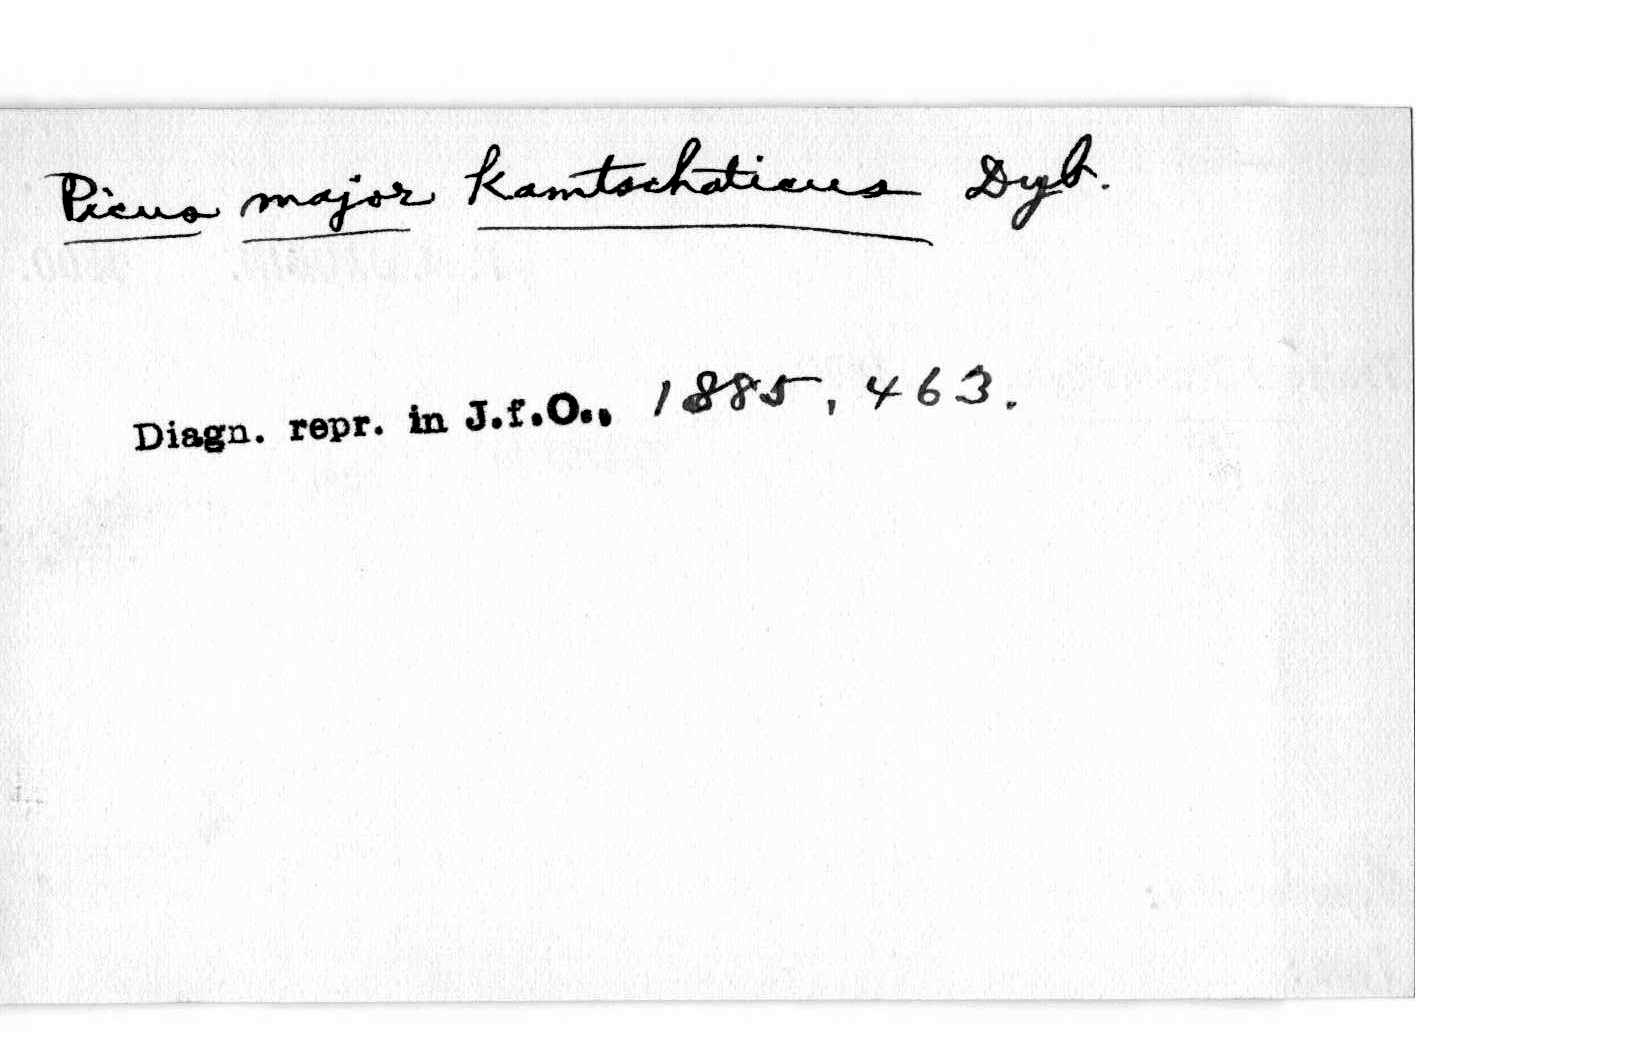 Picus major kamtschaticus Dyb.
Diagn. repr. in J.f.O., 1885, 463.